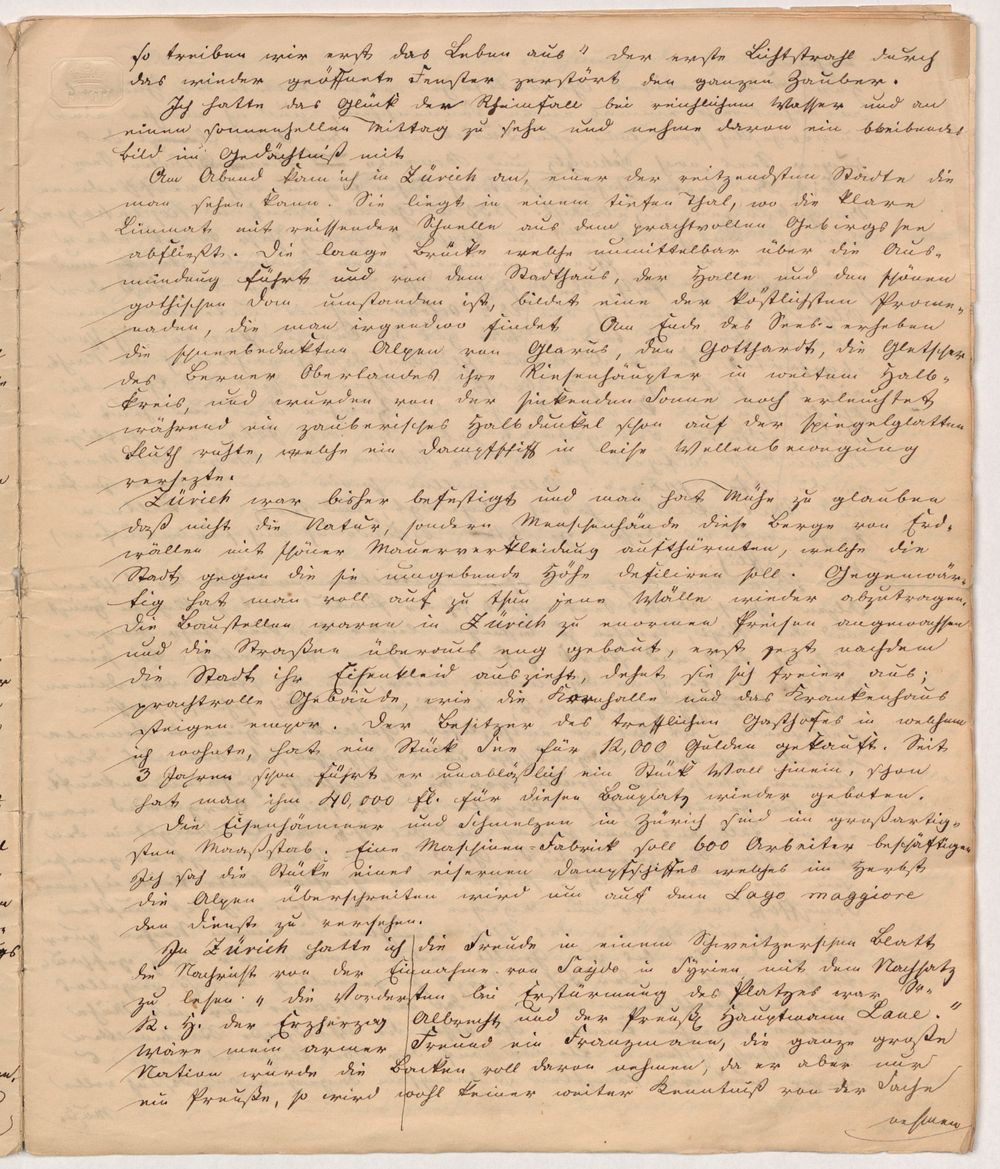 so treiben wir erst das Leben aus" der erste Lichtstrahl durch
das wieder geöffnete Fenster zerstört den ganzen Zauber.
Ich hatte das Glück der Rheinfall bei reichlichem Wasser und an
einen sonnenhellen Mittag zu sehn und nehme davon ein bleibendes
Bild im Gedächtniß mit
Am Abend kam ich in Zürich an, einer der reitzendsten Städte die
man sehen kann. Sie liegt in einem tiefen Thal, wo die klare
Limmat mit reissender Schnelle aus dem prachtvollen Gebirgssee
abfließt. Die lange Brücke welche unmittelbar über die Aus-
mündung führt und von dem Stadthaus, der Halle und den schönen
gothischen Dom umstanden ist, bildet eine der köstlichsten Prome-
naden, die man irgendwo findet Am Ende des Sees erheben
die schneebedeckten Alpen von Glarus, den Gotthardt, die Gletscher
des Berner Oberlandes ihre Riesenhäupter in weitem Halb-
kreis, und wurden von der sinkenden Sonne noch erleuchtet
während ein zauberisches Halbdunkel schon auf der spiegelglatten
Fluth ruhte, welche ein Dampfschiff in leise Wellenbewegung
versezte.
Zürich war bisher befestigt und man hat Mühe zu glauben
daß nicht die Natur, sondern Menschenhände diese Berge von Erd-
wällen mit schöner Mauerverkleidung aufthürmten, welche die
Stadt gegen die sie umgebende Höhe defiliren soll. Gegenwär-
tig hat man voll auf zu thun jene Wälle wieder abzutragen.
Die Baustellen waren in Zürich zu enormen Preisen angewachsen
und die Straßen überaus eng gebaut, erst jezt nachdem
die Stadt ihr Eisenkleid auszieht, dehnt sie sich freier aus;
prachtvolle Gebäude, wie die Kornhalle und das Krankenhaus
steigen empor. Der Besitzer des trefflichen Gasthofes in welchem
ich wohnte, hat ein Stück See für 12,000 Gulden gekauft. Seit
3 Jahren schon führt er unabläßlich ein Stück Wall hinein, schon
hat man ihm 40,000 fl. für diesen Bauplatz wieder geboten.
Die Eisenhämmer und Schmelzen in Zürich sind im großartig-
sten Maaßstab. Eine Maschinen-Fabrick soll 600 Arbeiter beschäftigen
Ich sah die Stücke eines eisernen Dampfschiffes welches im Herbst
die Alpen überschreiten wird um auf dem Lago maggiore
den Dienst zu versehen.
In Zürich hatte ich die Freude in einem Schweitzerschen Blatt
die Nachricht von der Einnahme von Saydo in Syrien mit dem Nachsatz
zu lesen „die Vordersten bei Erstürmung des Platzes war Sr.
K. H. der Erzherzog Albrecht und der Preuß Hauptmann Laue."
Wäre mein armer Freund ein Franzmann, die ganze große
Nation würde die Backen voll davon nehmen, da er aber nur
ein Preuße, so wird wohl keiner weiter Kenntniß von der Sache
nehmen